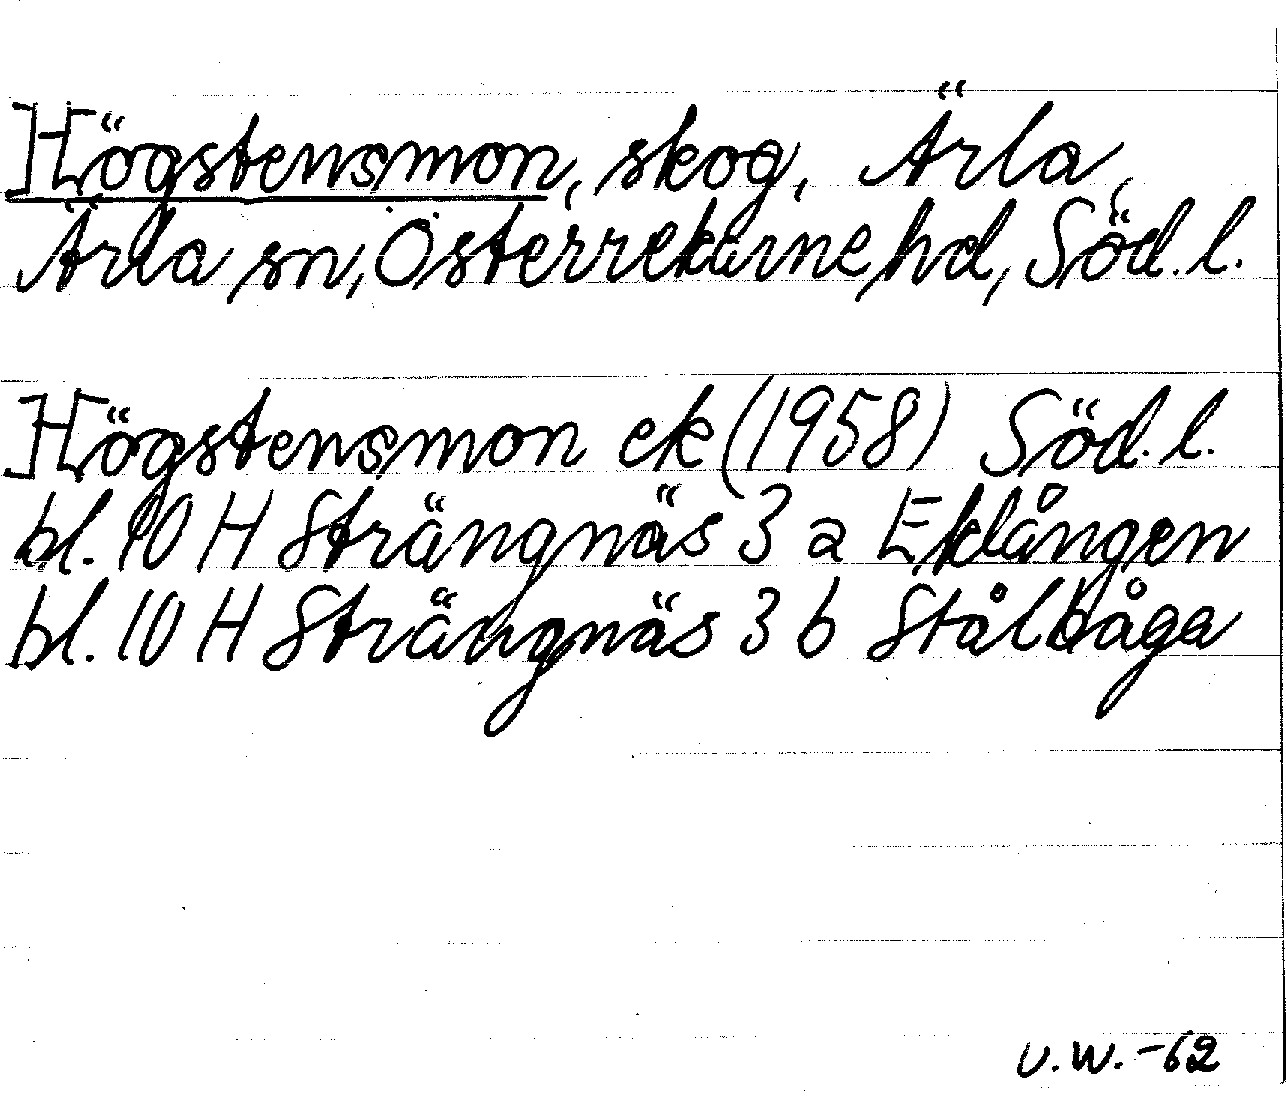 Högstensmon, skog, Ärla,
Ärla sn, Österrekarne hd, Söd. l.
Högstensmon ek (1958) Söd. l.
bl. 10 H Strängnäs 3 a Eklången
bl. 10 H Strängnäs 3 b Stålbåga
U.W. -62